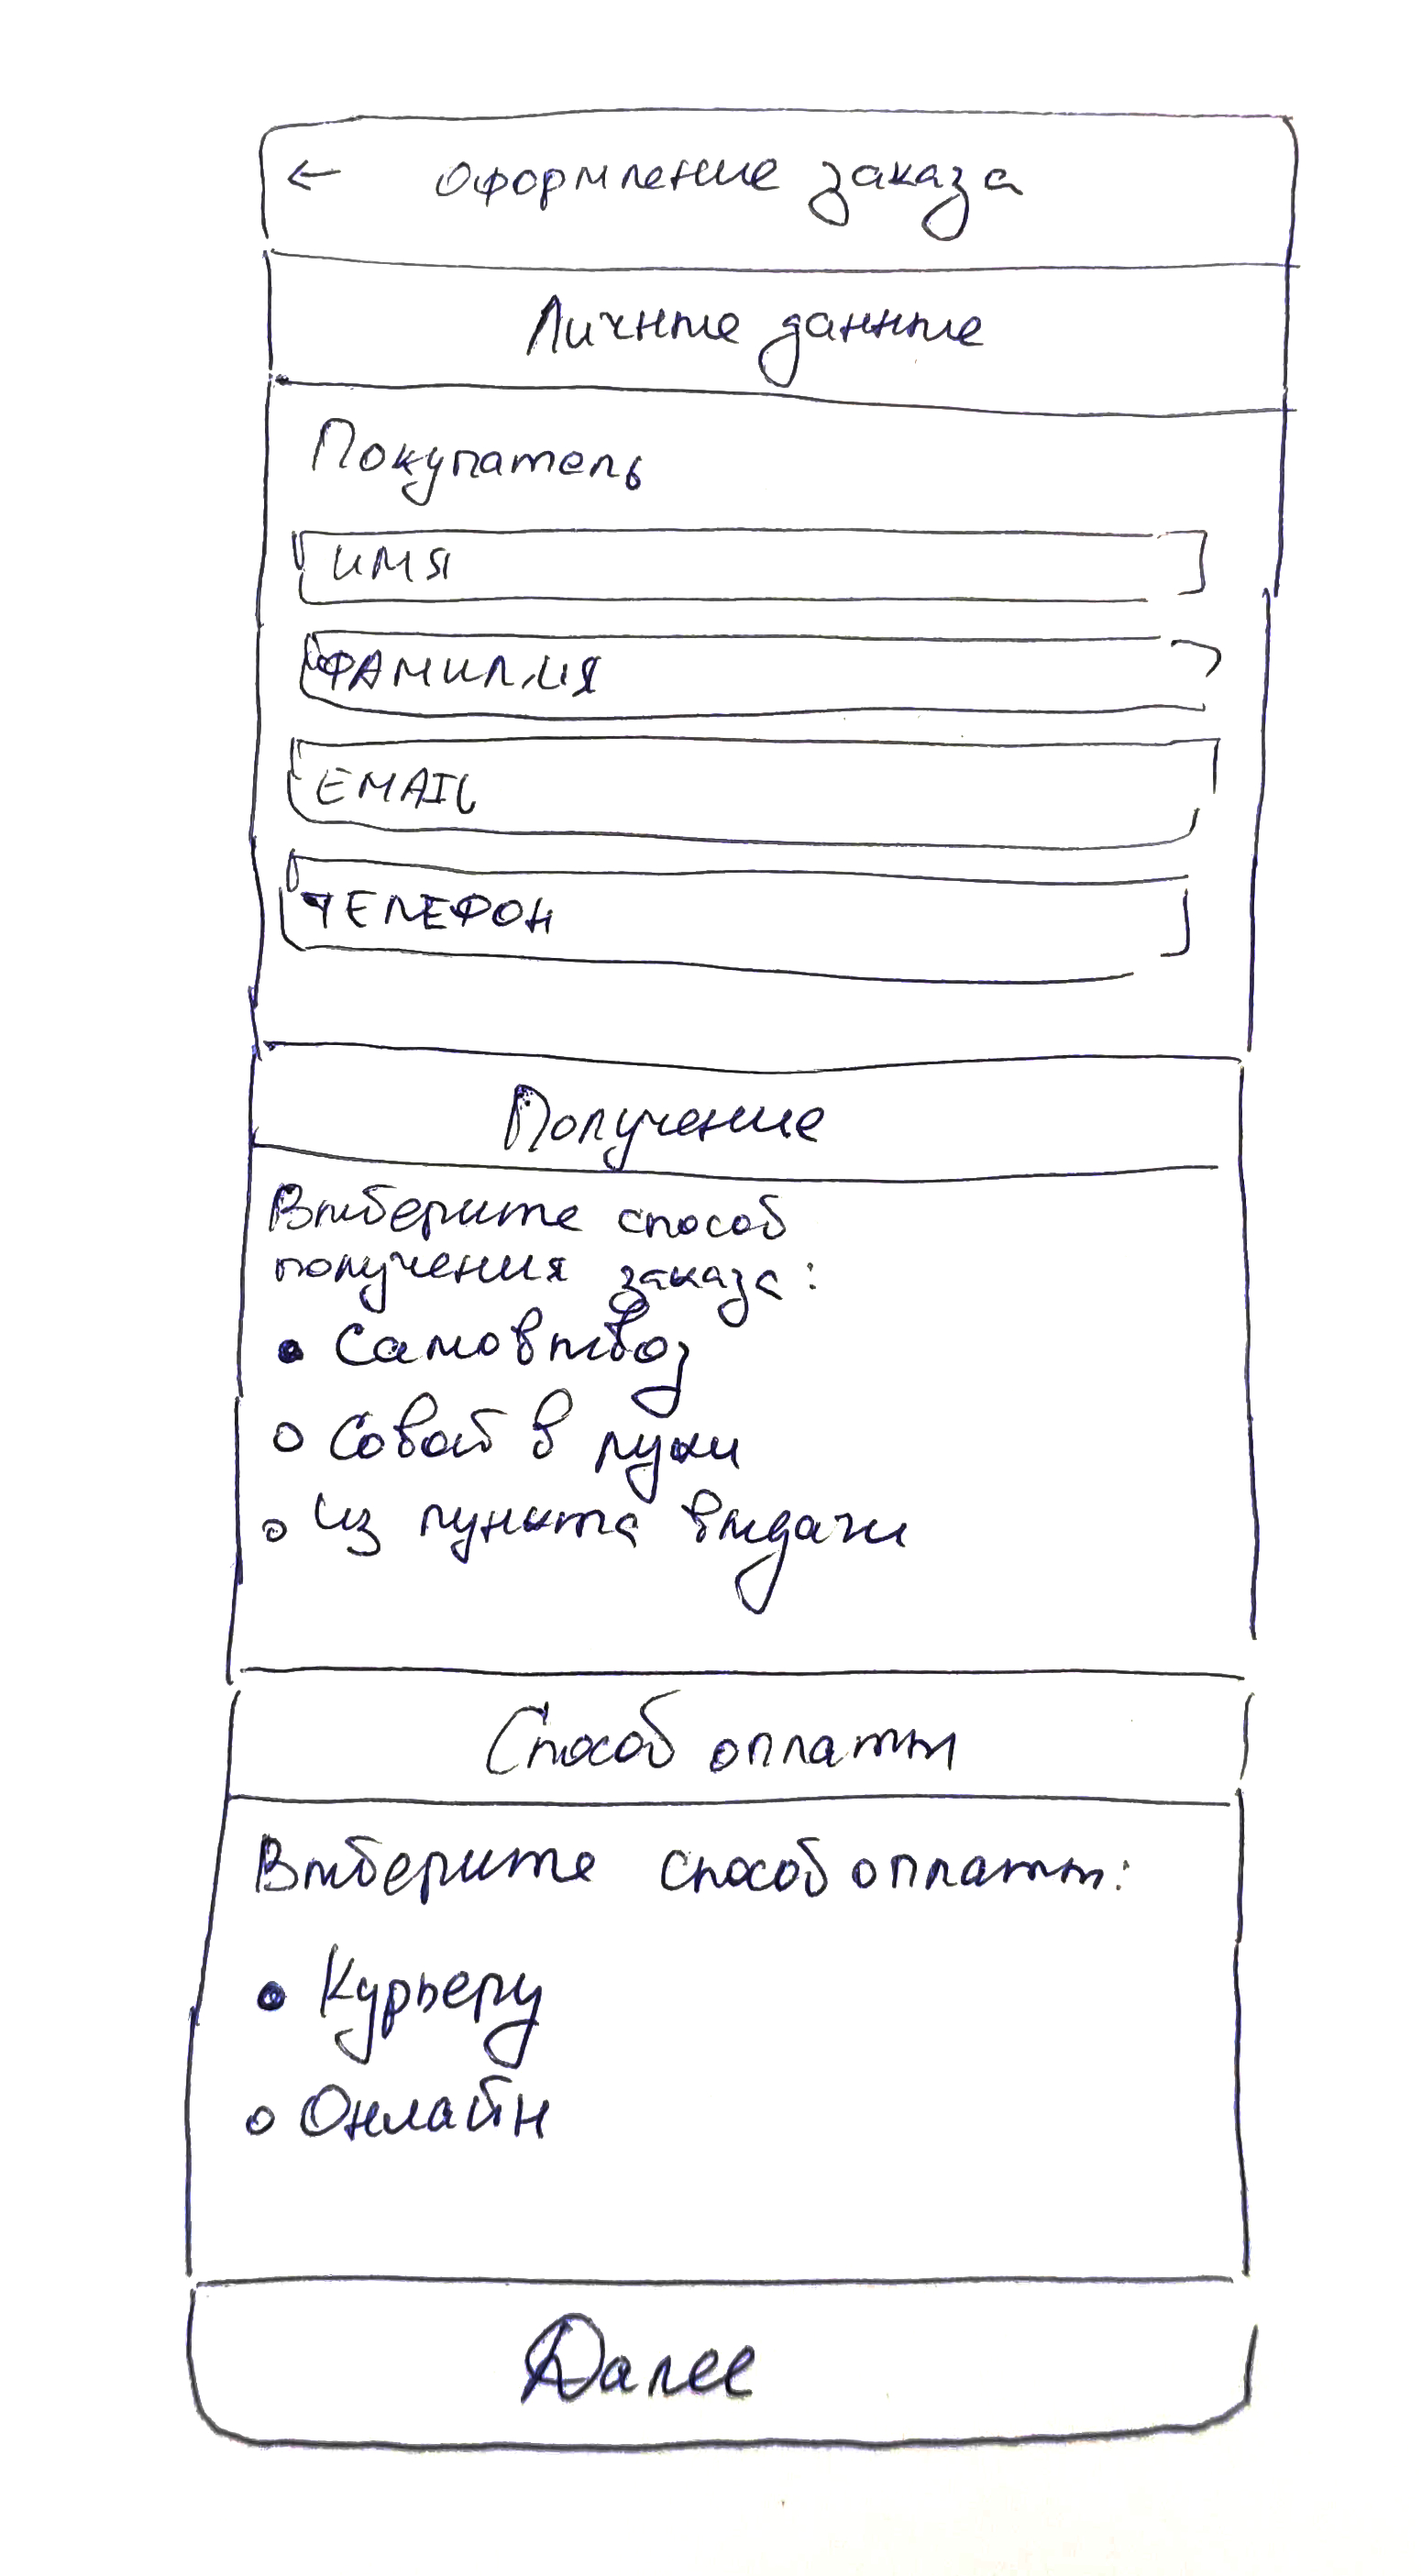 ← оформление заказа
Личные данные
Покупатель
ИМЯ
ФАМИЛИЯ
EMAIL
ТЕЛЕФОН
Получение
Выберите способ
получения заказа:
Самовывоз
Совой в руки
Из пункта выдачи
Способ оплаты
Выберите способ оплаты:
Курьеру
Онлайн
Далее